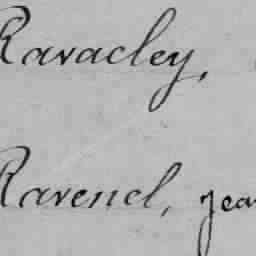 Ravacley,
Ravenel, jean